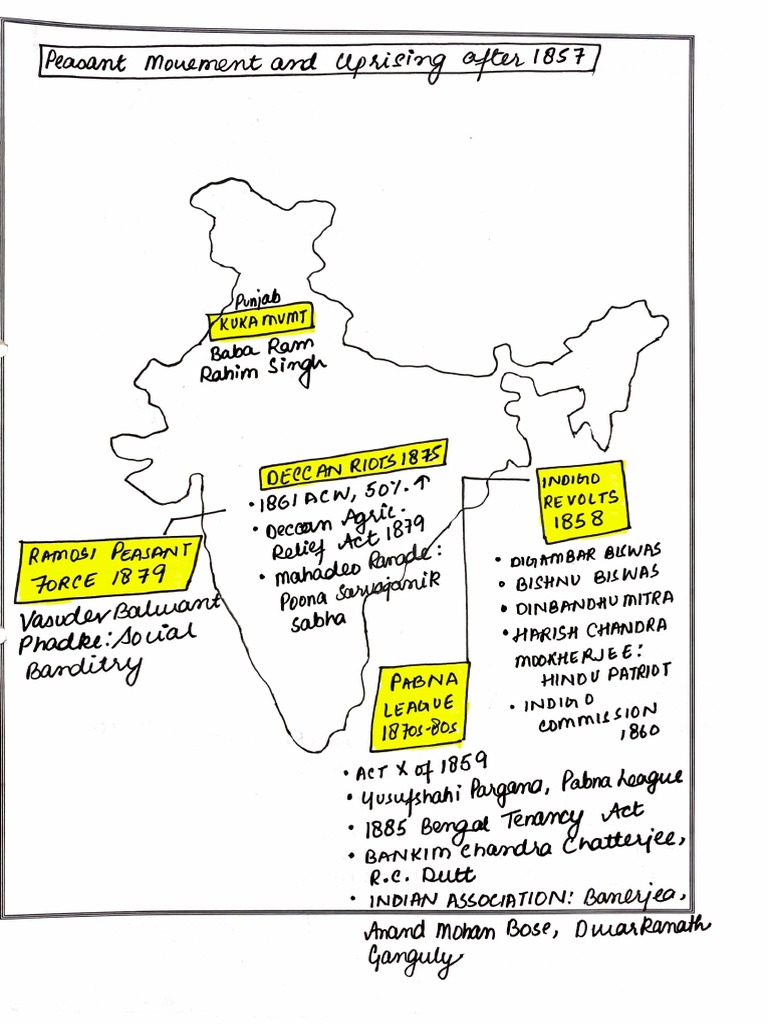 Peasant Movement and Uprising after 1857
Punjab
KUKA MVMT
Baba Ram
Rahim Singh
DECCAN RIOTS 1875
• 1861 ACW, 50% ↑
• Deccan Agric.
Relief Act 1879
• Mahadeo Ranade:
Poona Sarvajanik
Sabha
RAMOSI PEASANT
FORCE 1879
Vasudev Balwant
Phadke: Social
Banditry
INDIGO
REVOLTS
1858
• DIGAMBAR BISWAS
• BISHNU BISWAS
• DINBANDHU MITRA
• HARISH CHANDRA
MOOKHERJEE:
HINDU PATRIOT
• INDIGO
COMMISSION
1860
PABNA
LEAGUE
1870s-80s
• ACT X of 1859
• Yusufshahi Pargana, Pabna League
• 1885 Bengal Tenancy Act
• BANKIM Chandra Chatterjee,
R.C. Dutt
• INDIAN ASSOCIATION: Banerjea,
Anand Mohan Bose, Dwarkanath
Ganguly